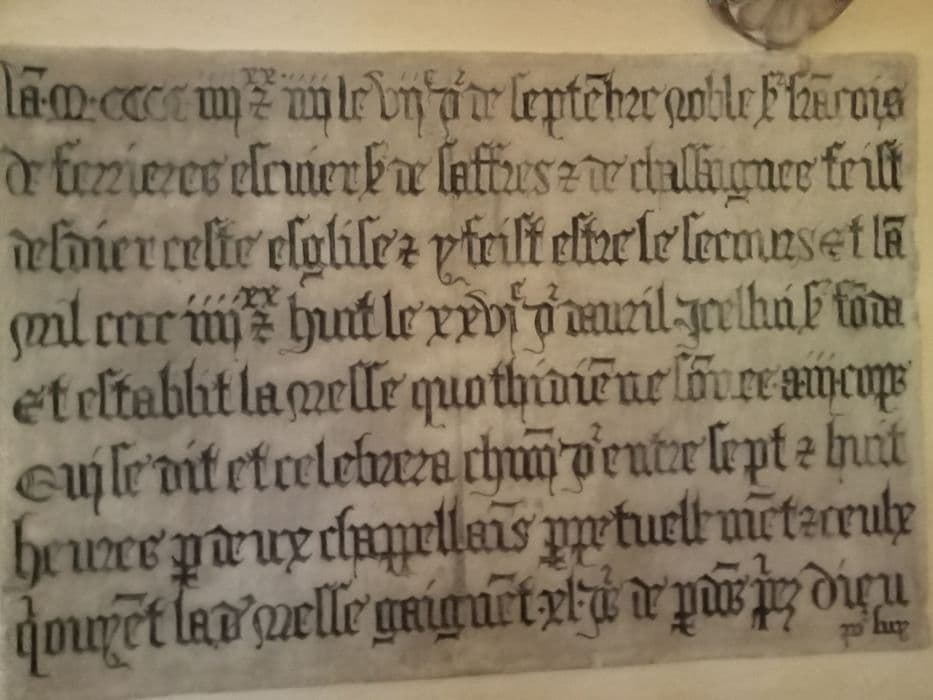 lā·m·cccc iiii xx z iiii le viie jor de septēbre noble sr frācois
de ferrieres escuier sr de saffres z de chassaignes feist
desdier ceste esglise z y feist estre le secours et lā
mil cccc iiii xx z huit le xxvie jor dauril Jcelhui sr fōda
et establit la messe quothidiēne sōnee a iii cops
Qui se dit et celebrera chūn jor entre sept z huit
heures p deux chappellaīs ppetuelz mēt z ceulx
q ouyēt lad messe gaignēt xl jrs de pdōs prez dieu
po eulx